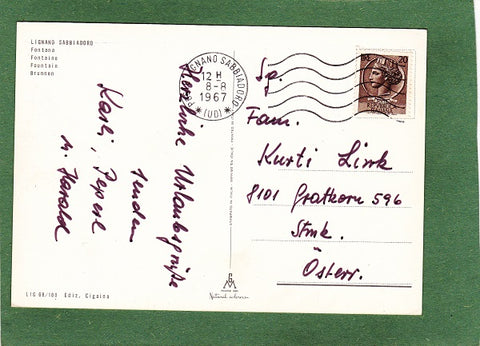 LIGNANO SABBIADORO
Fontana
Fontaine
Fountain
Brunnen
Herzliche Urlaubsgrüße
senden
Karli, Peperl
u. Harald
LIG 98/108 Ediz. Cigaina
LIGNANO SABBIADORO
12 H
8-8
1967
* (UD) *
20
Sg.
Fam.
Kurti Link
8101 Gratkorn 596
Stmk.
Österr.